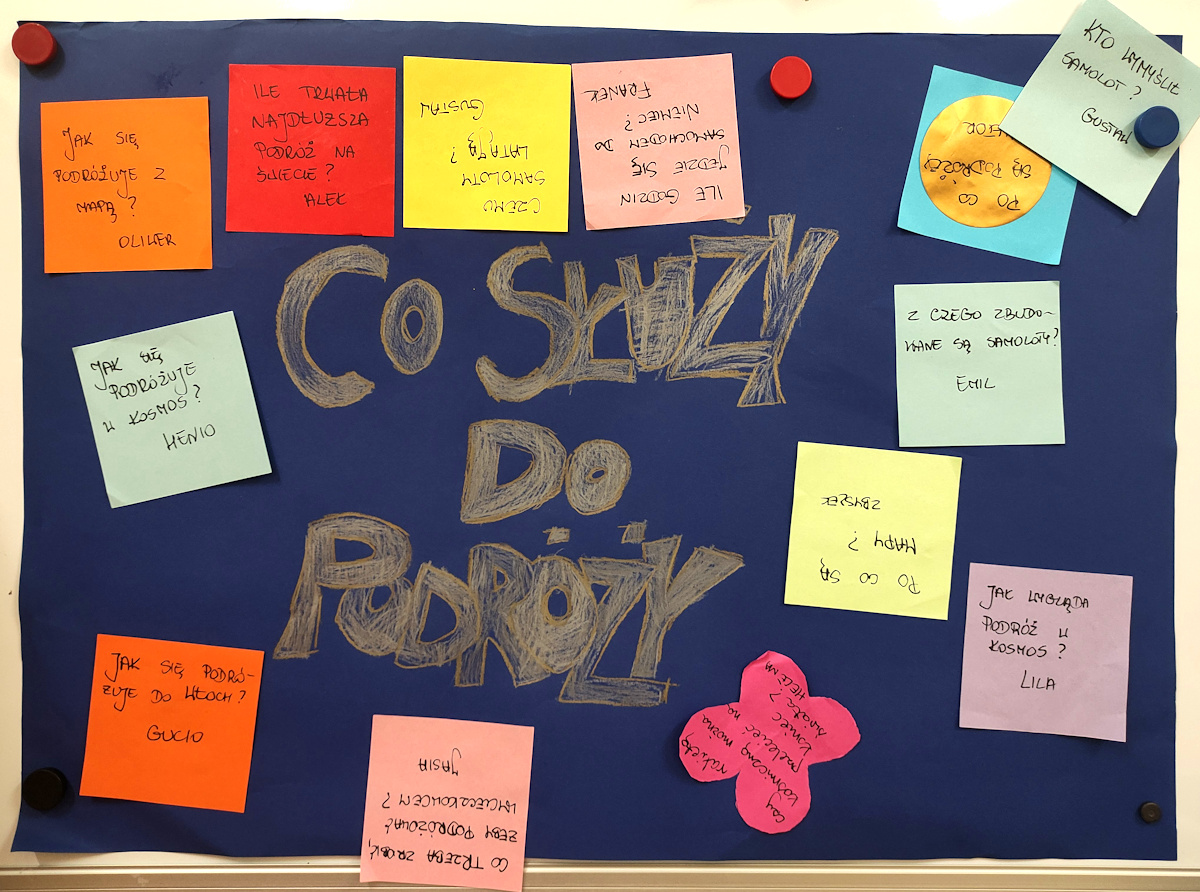 CO SŁUŻY
DO
PODRÓŻY
JAK SIĘ
PODRÓŻUJE Z
MAPĄ?
OLIWER
ILE TRWAŁA
NAJDŁUŻSZA
PODRÓŻ NA
ŚWIECIE?
ALEK
CZEMU
SAMOLOTY
LATAJĄ?
GUSTAW
ILE GODZIN
JEDZIE SIĘ
SAMOCHODEM DO
NIEMIEC?
FRANEK
PO CO
SĄ PODRÓŻE?
KTO WYMYŚLIŁ
SAMOLOT?
GUSTAW
JAK SIĘ
PODRÓŻUJE
W KOSMOS?
HENIO
Z CZEGO ZBUDO-
WANE SĄ SAMOLOTY?
EMIL
PO CO SĄ
MAPY?
ZBYSZEK
JAK WYGLĄDA
PODRÓŻ W
KOSMOS?
LILA
JAK SIĘ PODRÓ-
ŻUJE DO WŁOCH?
GUCIO
CO TRZEBA ZROBIĆ,
ŻEBY PODRÓŻOWAĆ
WYCIECZKOWCEM?
JASIA
czy
kosmiczną można
rakietą
polecieć na
koniec
świata?
HELENA